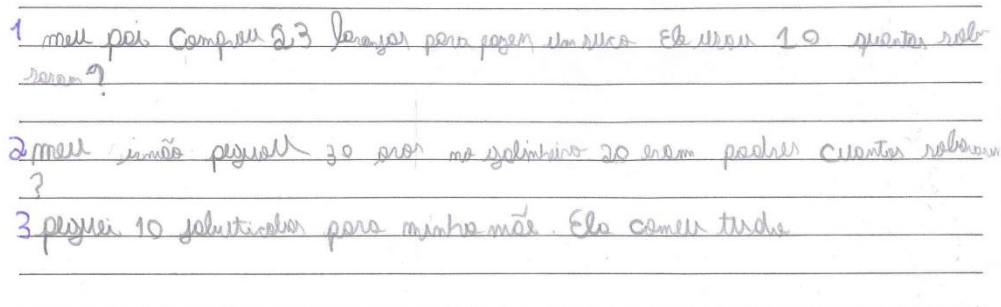 1 meu pai comprou 23 laranjas para fazer um suco Ele usou 10 quantas sob
raram?
2 meu irmão pegou 30 ovos no galinheiro 20 eram podres cuantos sobraram
?
3 peguei 10 jabuticabas para minha mãe. Ela comeu tudo